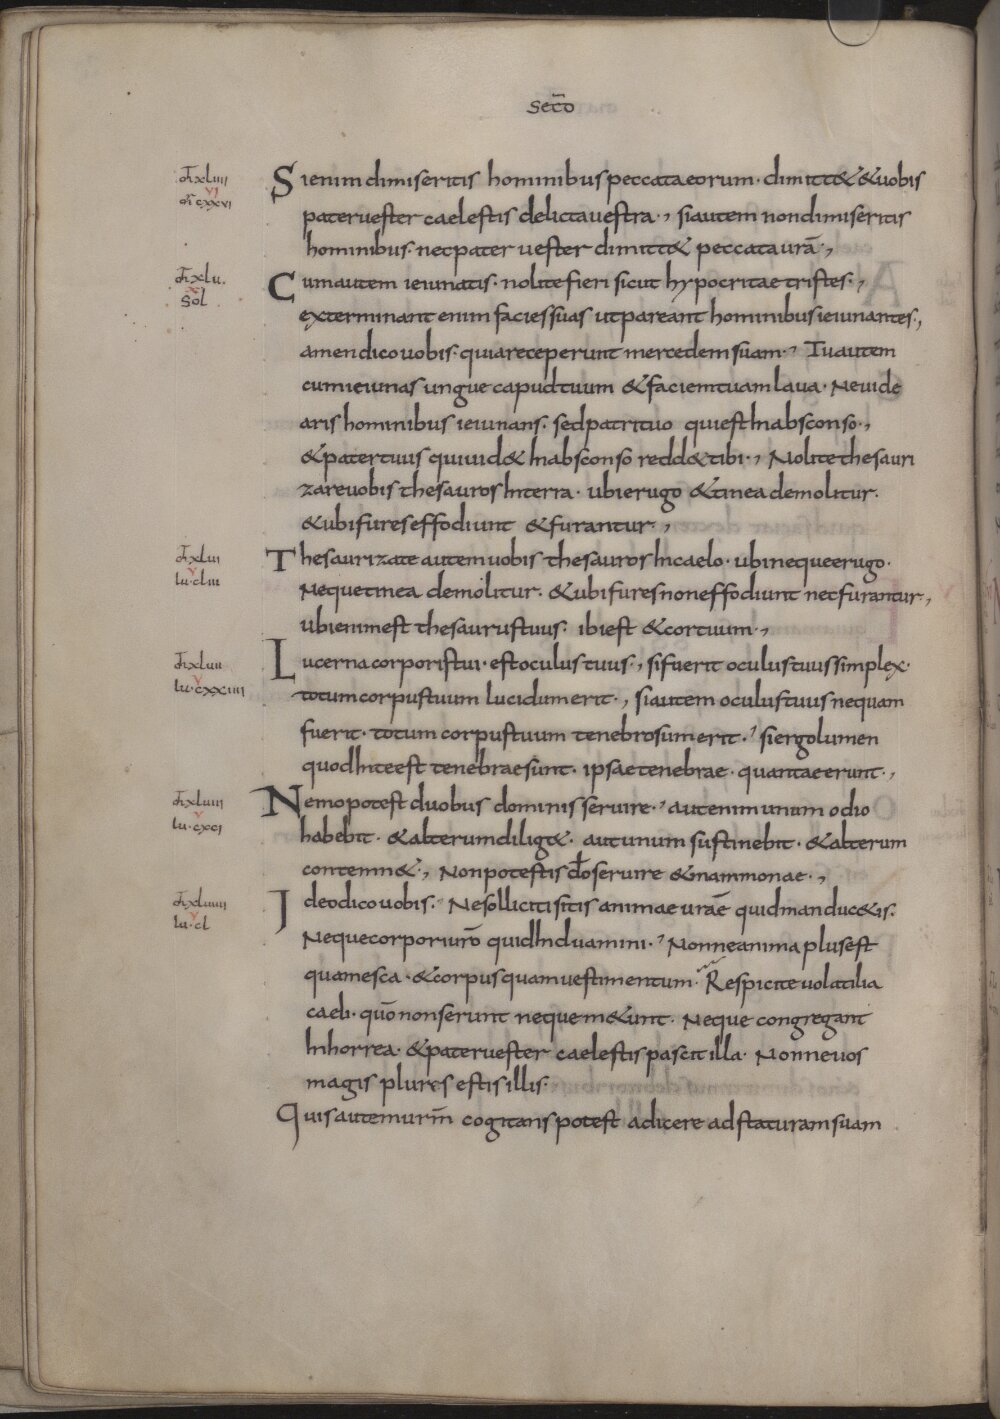 secd̄o
m̄ xliiii
vi
m̄ cxxvi
Sienim dimiseritis hominibus peccata eorum· dimittet & uobis
pater uester caelestis delicta uestra·, si autem non dimiseritis
hominibus· nec pater uester dimitt& peccata urā·,
m̄ xlu.
x
sol
Cum autem ieiunatis· nolite fieri sicut hypocritae tristes·,
exterminant enim facies suas ut pareant hominibus ieiunantes·,
amen dico uobis· quia receperunt mercedem suam·, Tu autem
cum ieiunas ungue caput tuum & faciem tuam laua· Ne uide
aris hominibus ieiunans· sed patri tuo qui est In absconso·,
& pater tuus qui uid& In absconso redd& tibi·, Nolite thesauri
zare uobis thesauros In terra· ubi erugo & tinea demolitur·
& ubi fures effodiunt & furantur·,
m̄ xlui
v
lu·cliii
Thesaurizate autem uobis thesauros In caelo· ubi neque erugo·
Neque tinea demolitur· & ubi fures non effodiunt nec furantur·,
ubi enim est thesaurus tuus· ibi est & cor tuum·,
m̄ xluii
v
lu·cxxiiii
Lucerna corporis tui· est oculus tuus·, si fuerit oculus tuus simplex·
totum corpus tuum lucidum erit·, si autem oculus tuus nequam
fuerit· totum corpus tuum tenebrosum erit·, si ergo lumen
quod In te est tenebrae sunt· ipsae tenebrae· quantae erunt·,
m̄ xluiii
v
lu·cxci
Nemo potest duobus dominis seruire·, aut enim unum odio
habebit· & alterum dilig&· aut unum sustinebit· & alterum
contemn&·, Non potestis dō seruire & mammonae·,
m̄ xluiiii
v
lu·cl
Ideo dico uobis· Ne solliciti sitis animae urāe quid manduc&is·
Neque corpori urō quid Induamini·, Nonne anima plus est
quam esca· & corpus quam uestimentum· Respicite uolatilia
caeli· quō non serunt neque m&unt· Neque congregant
In horrea· & pater uester caelestis pascit illa· Nonne uos
magis plures estis illis·
Quis autem urm̄ cogitans potest adicere ad staturam suam